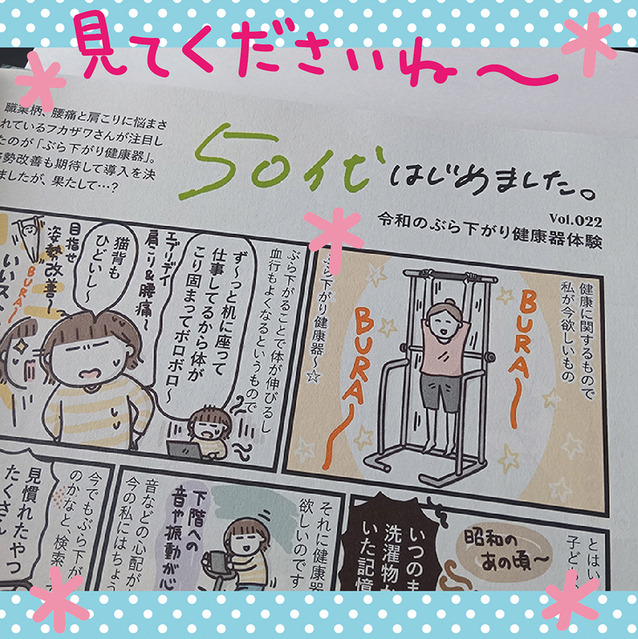 見てくださいね〜
職業柄、腰痛と肩こりに悩まさ
れているフカザワさんが注目し
たのが「ぶら下がり健康器」。
姿勢改善も期待して導入を決
ましたが、果たして…？
50代はじめました。
Vol.022
令和のぶら下がり健康器体験
健康に関するもので
私が今欲しいもの
BURA〜
BURA〜
ぶら下がり健康器〜☆
ぶら下がることで体が伸びるし
血行もよくなるというもので
ず〜っと机に座って
仕事してるから体が
こり固まってボロボロ〜
エブリデイ
肩こり&腰痛〜
猫背も
ひどいし〜
目指せ
姿勢改善〜
BURA〜
いいス
とはい
子ども
昭和の
あの頃〜
いつのま
洗濯物か
いた記憶
それに健康器
欲しいのです
下階への
音や振動が心
音などの心配が
今の私にはちょう
今でもぶら下が
のかなと、検索
見慣れたやつ
たくさん